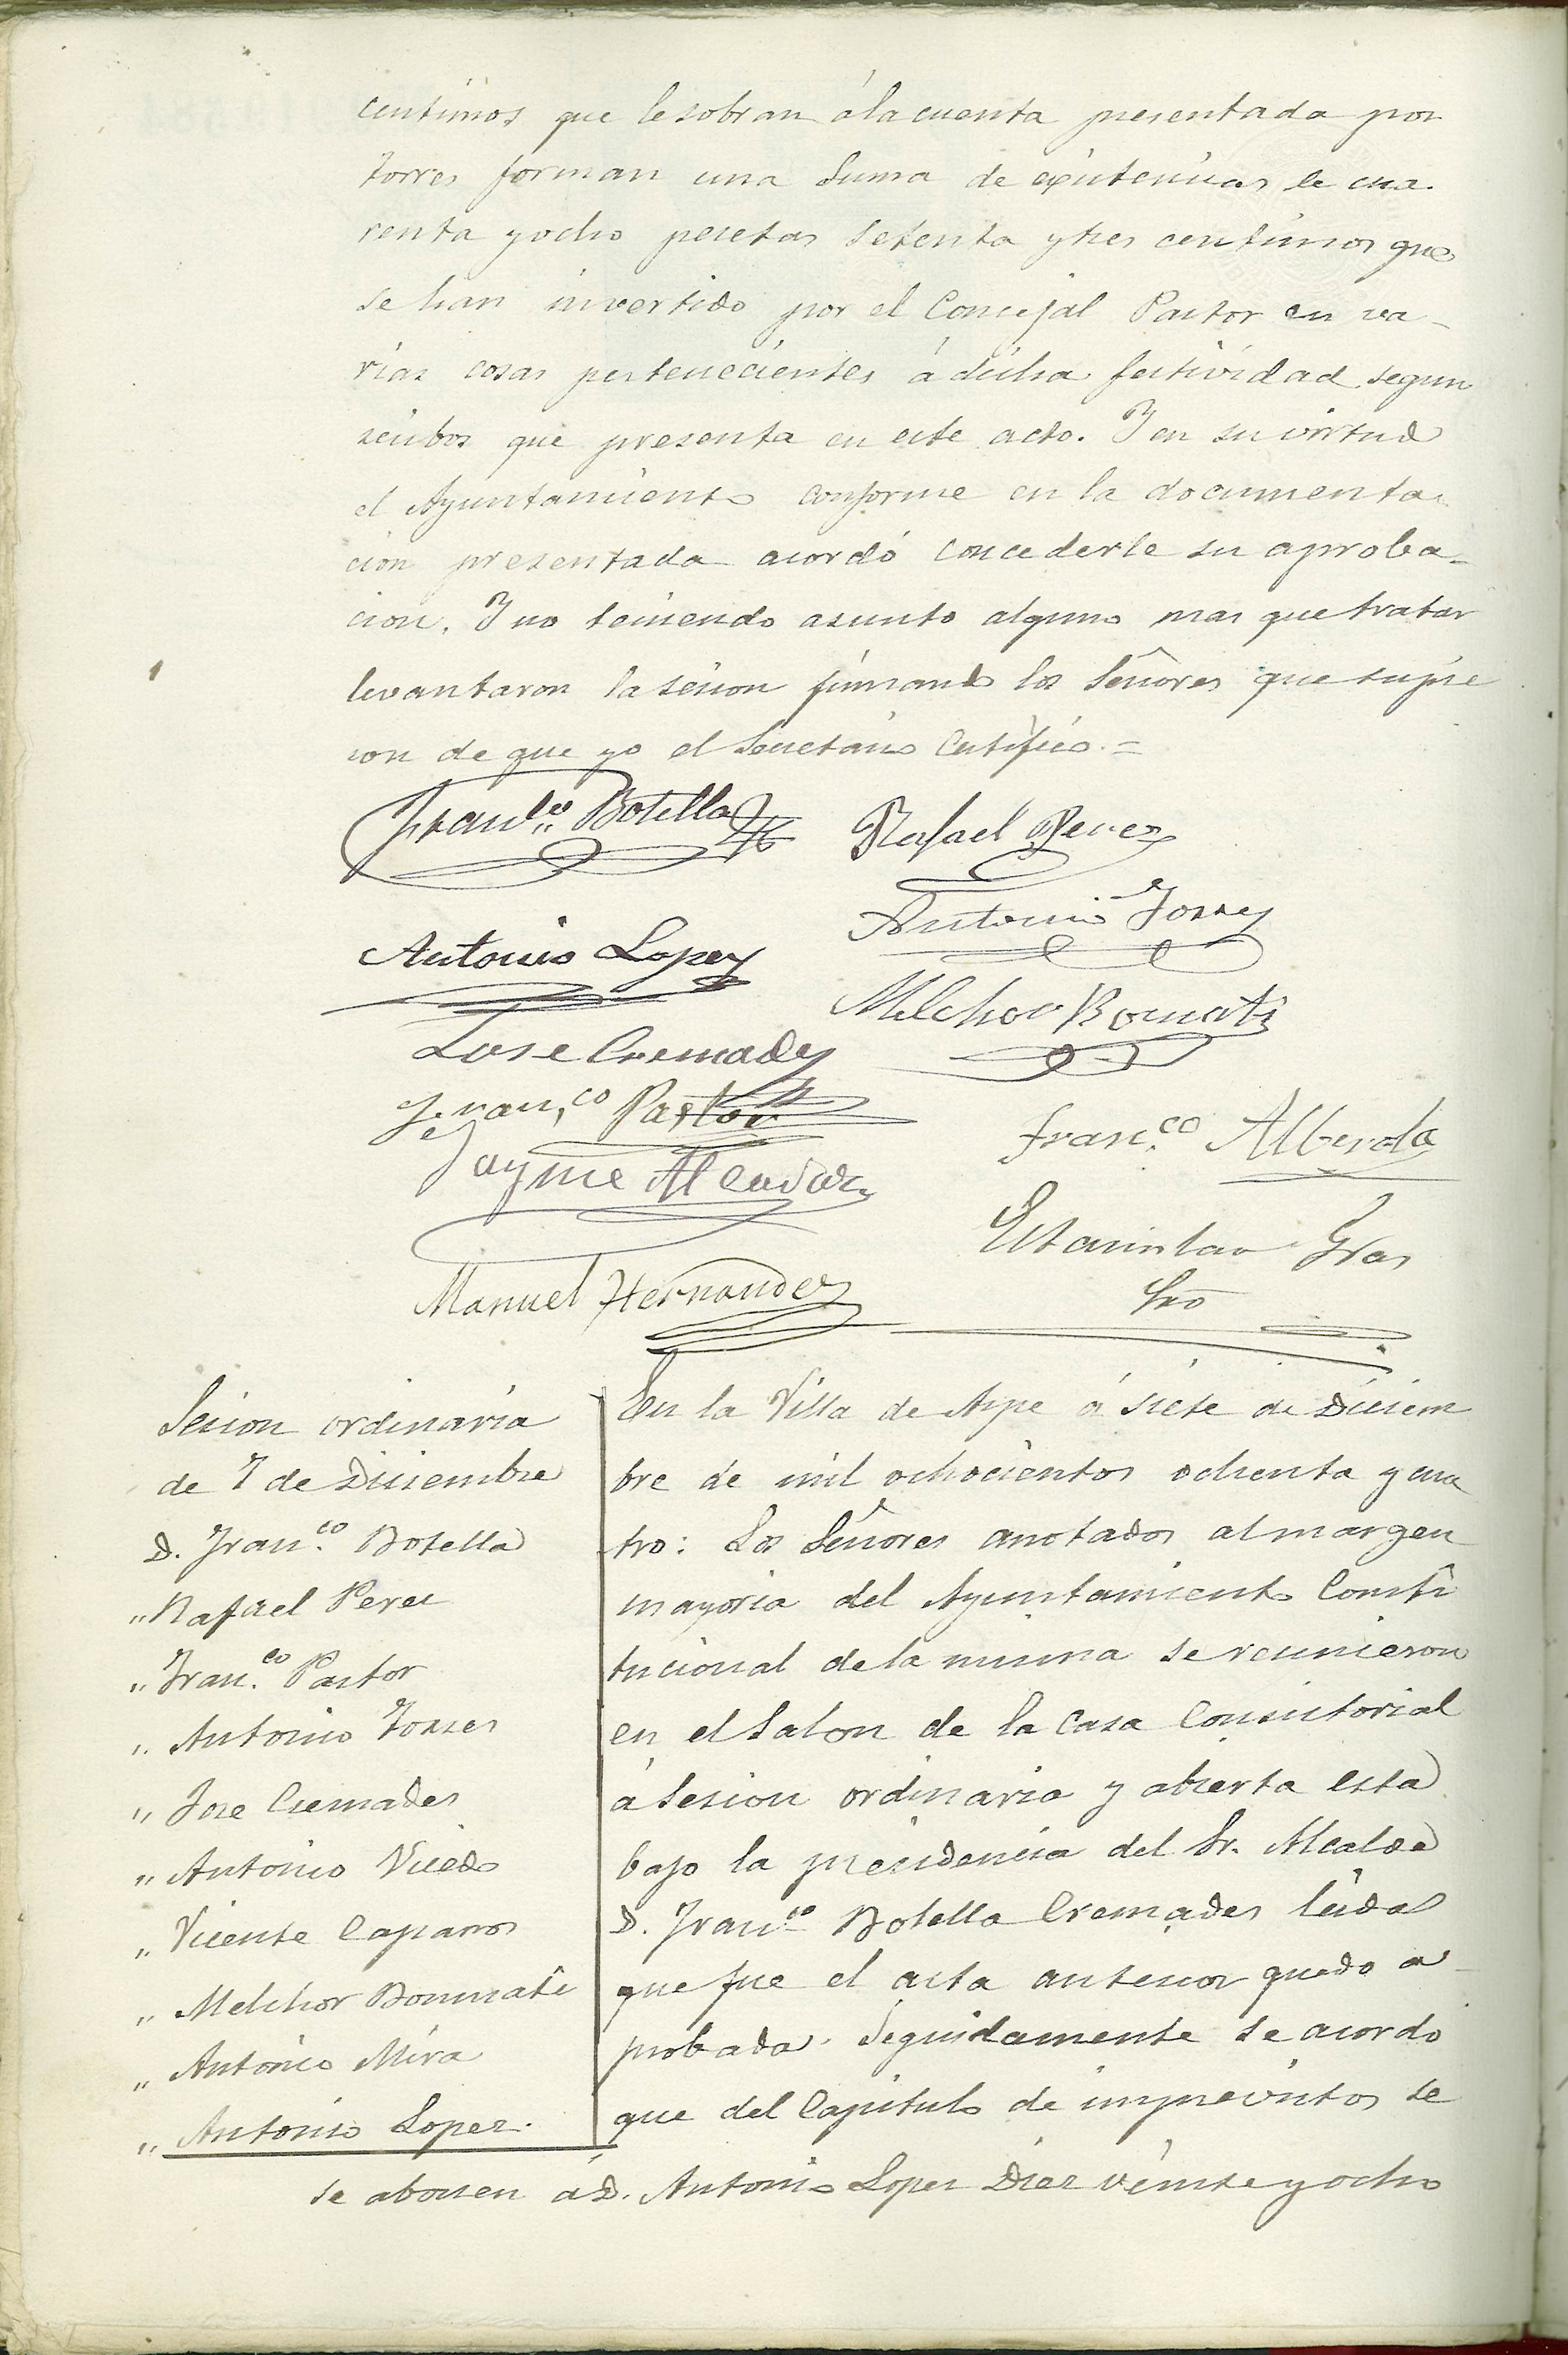 centimos que le sobran á la cuenta presentada por
Torres forman una Suma de existencias de cua-
renta y ocho pesetas Setenta y tres centimos que
se han invertido por el Concejal Pastor en va-
rias cosas pertenecientes á dicha festividad segun
recibos que presenta en este acto. Y en su virtud
el Ayuntamiento conforme en la documenta-
cion presentada acordó concederle su aproba-
cion. Y no teniendo asunto alguno mas que tratar
levantaron la sesion firmando los Señores que supie
ron de que yo el Secretario Certifico.=
Franco. Botella Rafael Perez
Antonio Torres
Antonio Lopez
Melchor Bonmati
Jose Cremades
Fran.co Pastor
Fran.co Alberola
Jayme Alcaraz
Estanislao Gras
Manuel Hernandez
Srio
Sesion ordinaria
de 7 de Diciembre
D. Fran.co Botella
" Rafael Perez
" Fran.co Pastor
" Antonio Torres
" Jose Cremades
" Antonio Vicedo
" Vicente Caparros
" Melchor Bonmati
" Antonio Mira
" Antonio Lopez.
En la Villa de Aspe á siete de Diciem
bre de mil ochocientos ochenta y cua
tro: Los Señores anotados al margen
mayoria del Ayuntamiento Consti
tucional de la misma se reunieron
en el Salon de la Casa Consistorial
á Sesion ordinaria y abierta esta
bajo la presidencia del Sr. Alcalde
D. Franco Botella Cremades leida
que fue el acta anterior quedo a-
probada. Seguidamente se acordo
que del Capitulo de imprevistos se
se abonen á D. Antonio Lopez Diez veinte y ocho